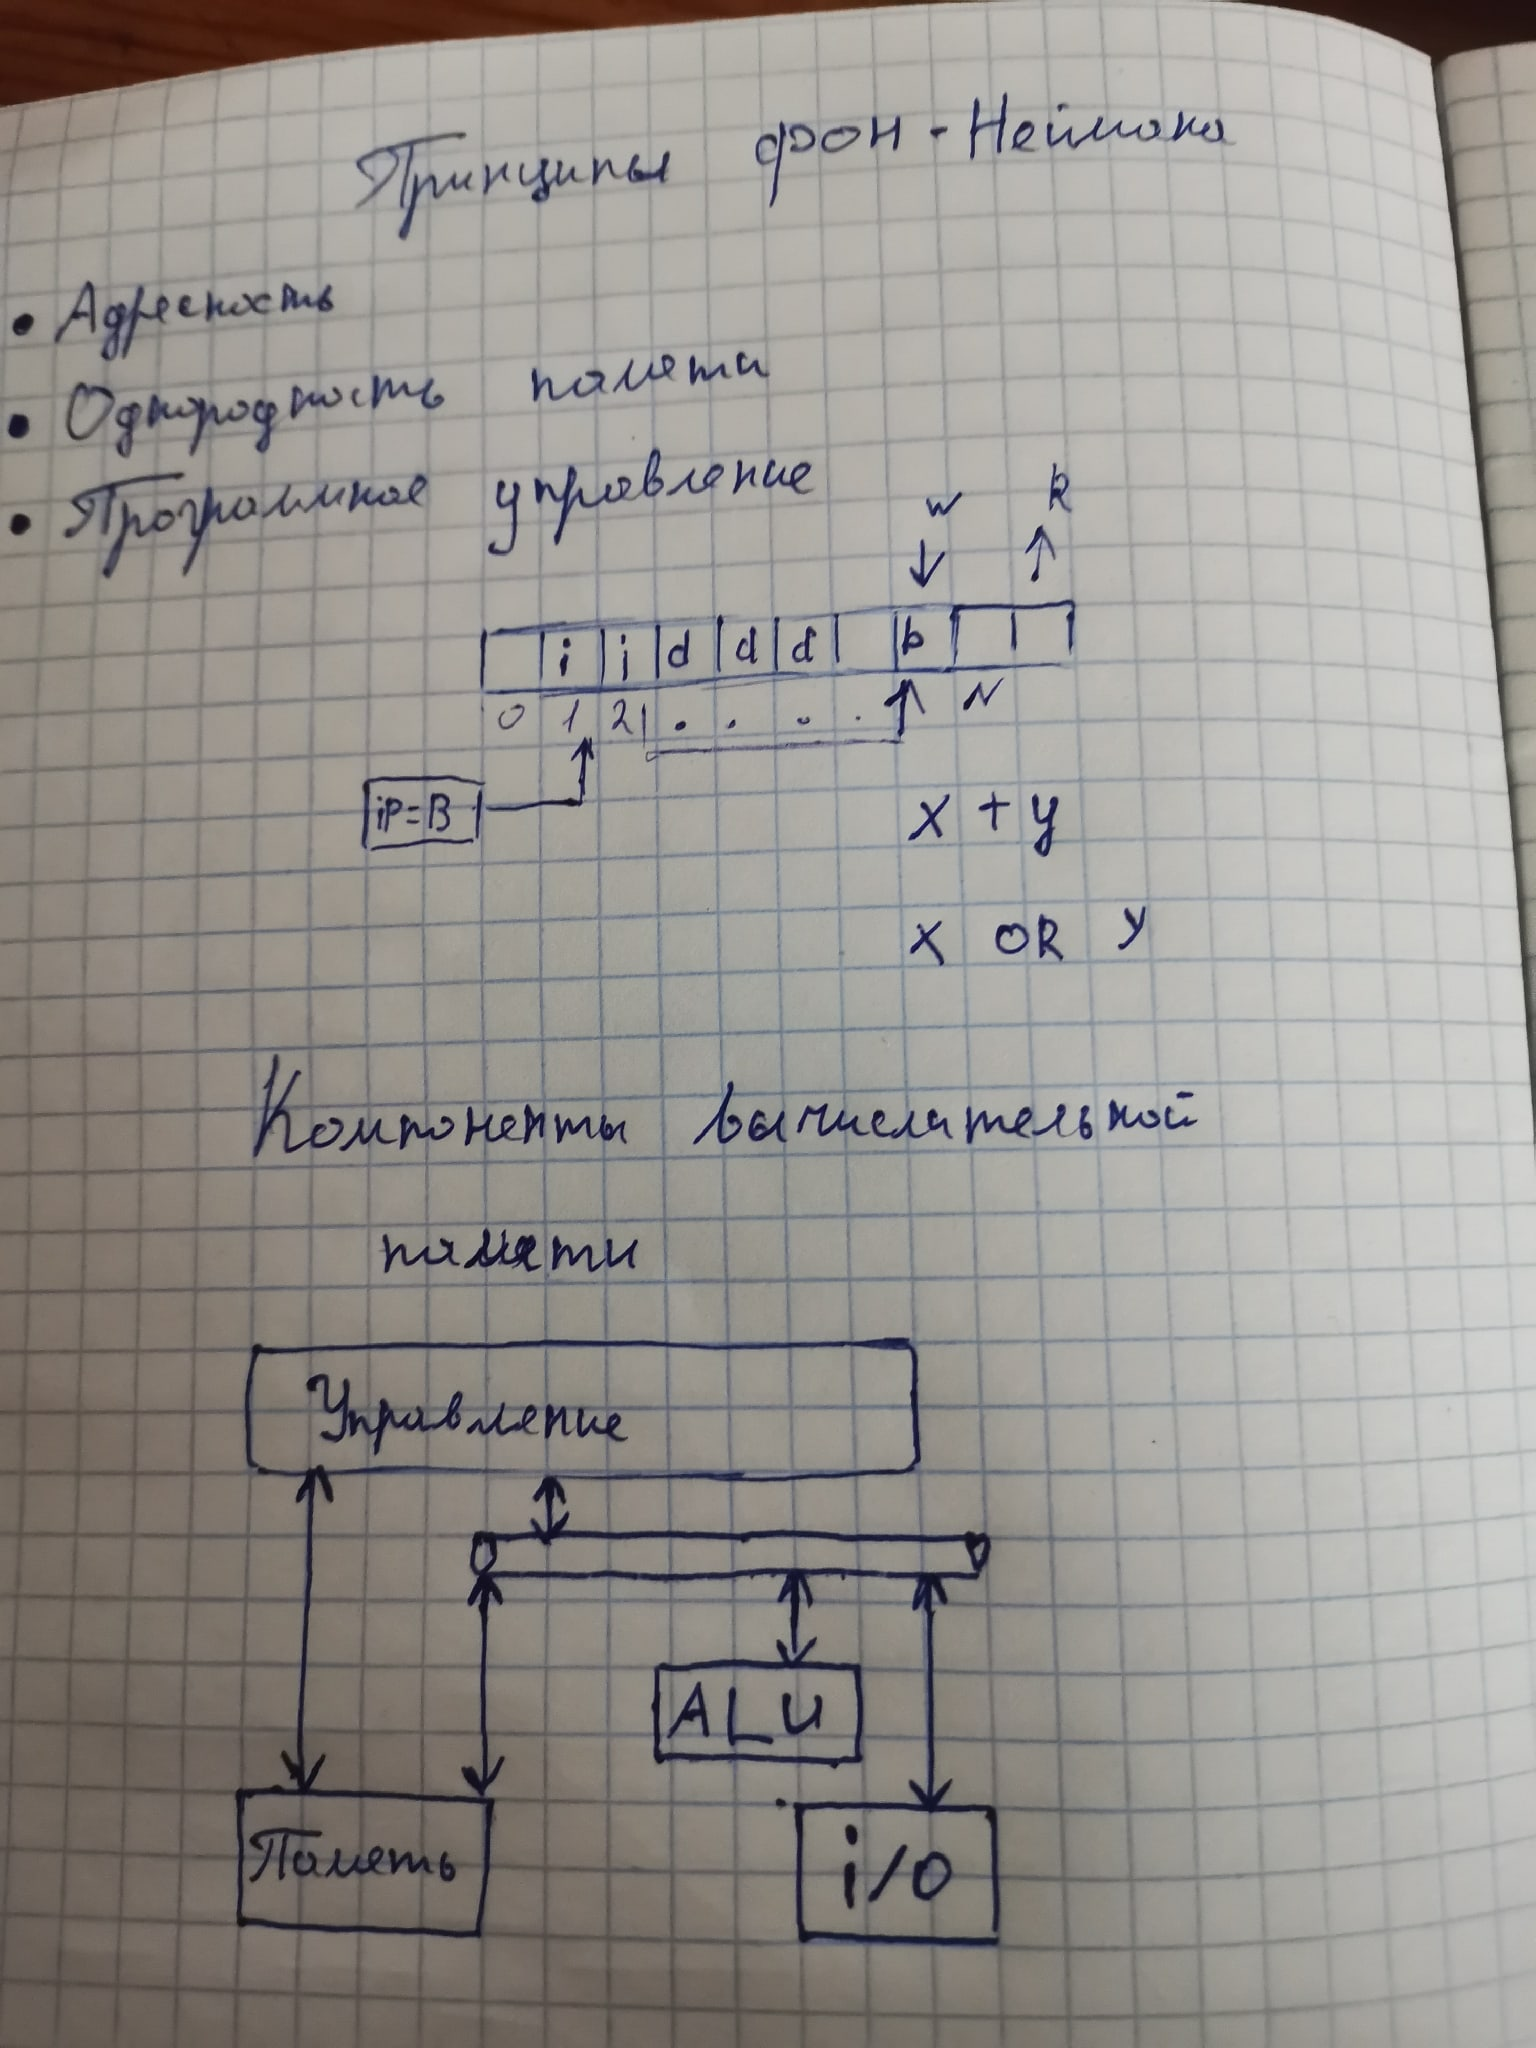 Принципы фон-Неймана
• Адресность
• Однородность памяти
• Программное управление
w R
i i d d d b
0 1 2 . . . . N
iP=B
x + y
x OR y
Компоненты вычислительной
памяти
Управление
ALU
Память
i/O